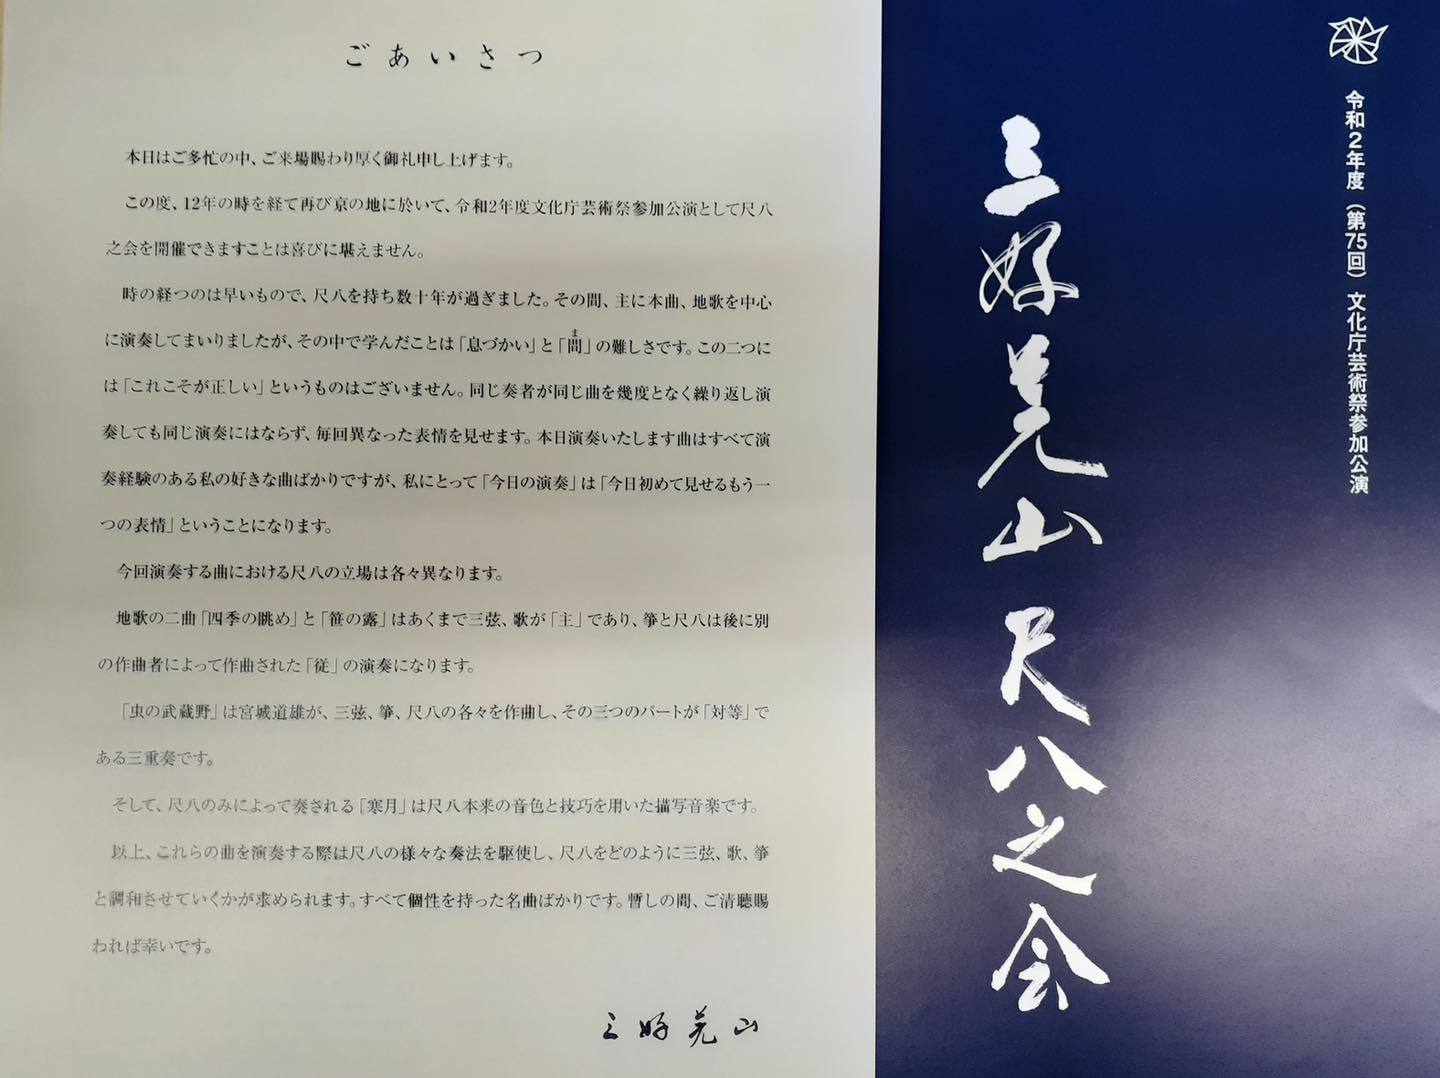 ごあいさつ
本日はご多忙の中、ご来場賜わり厚く御礼申し上げます。
この度、12年の時を経て再び京の地に於いて、令和2年度文化庁芸術祭参加公演として尺八
之会を開催できますことは喜びに堪えません。
時の経つのは早いもので、尺八を持ち数十年が過ぎました。その間、主に本曲、地歌を中心
に演奏してまいりましたが、その中で学んだことは「息づかい」と「間」の難しさです。この二つに
ま
は「これこそが正しい」というものはございません。同じ奏者が同じ曲を幾度となく繰り返し演
奏しても同じ演奏にはならず、毎回異なった表情を見せます。本日演奏いたします曲はすべて演
奏経験のある私の好きな曲ばかりですが、私にとって「今日の演奏」は「今日初めて見せるもう一
つの表情」ということになります。
今回演奏する曲における尺八の立場は各々異なります。
地歌の二曲「四季の眺め」と「笹の露」はあくまで三弦、歌が「主」であり、箏と尺八は後に別
の作曲者によって作曲された「従」の演奏になります。
「虫の武蔵野」は宮城道雄が、三弦、箏、尺八の各々を作曲し、その三つのパートが「対等」で
ある三重奏です。
そして、尺八のみによって奏される「寒月」は尺八本来の音色と技巧を用いた描写音楽です。
以上、これらの曲を演奏する際は尺八の様々な奏法を駆使し、尺八をどのように三弦、歌、箏
と調和させていくかが求められます。すべて個性を持った名曲ばかりです。暫しの間、ご清聴賜
われば幸いです。
三好芫山
令和2年度（第75回）文化庁芸術祭参加公演
三好芫山 尺八之会